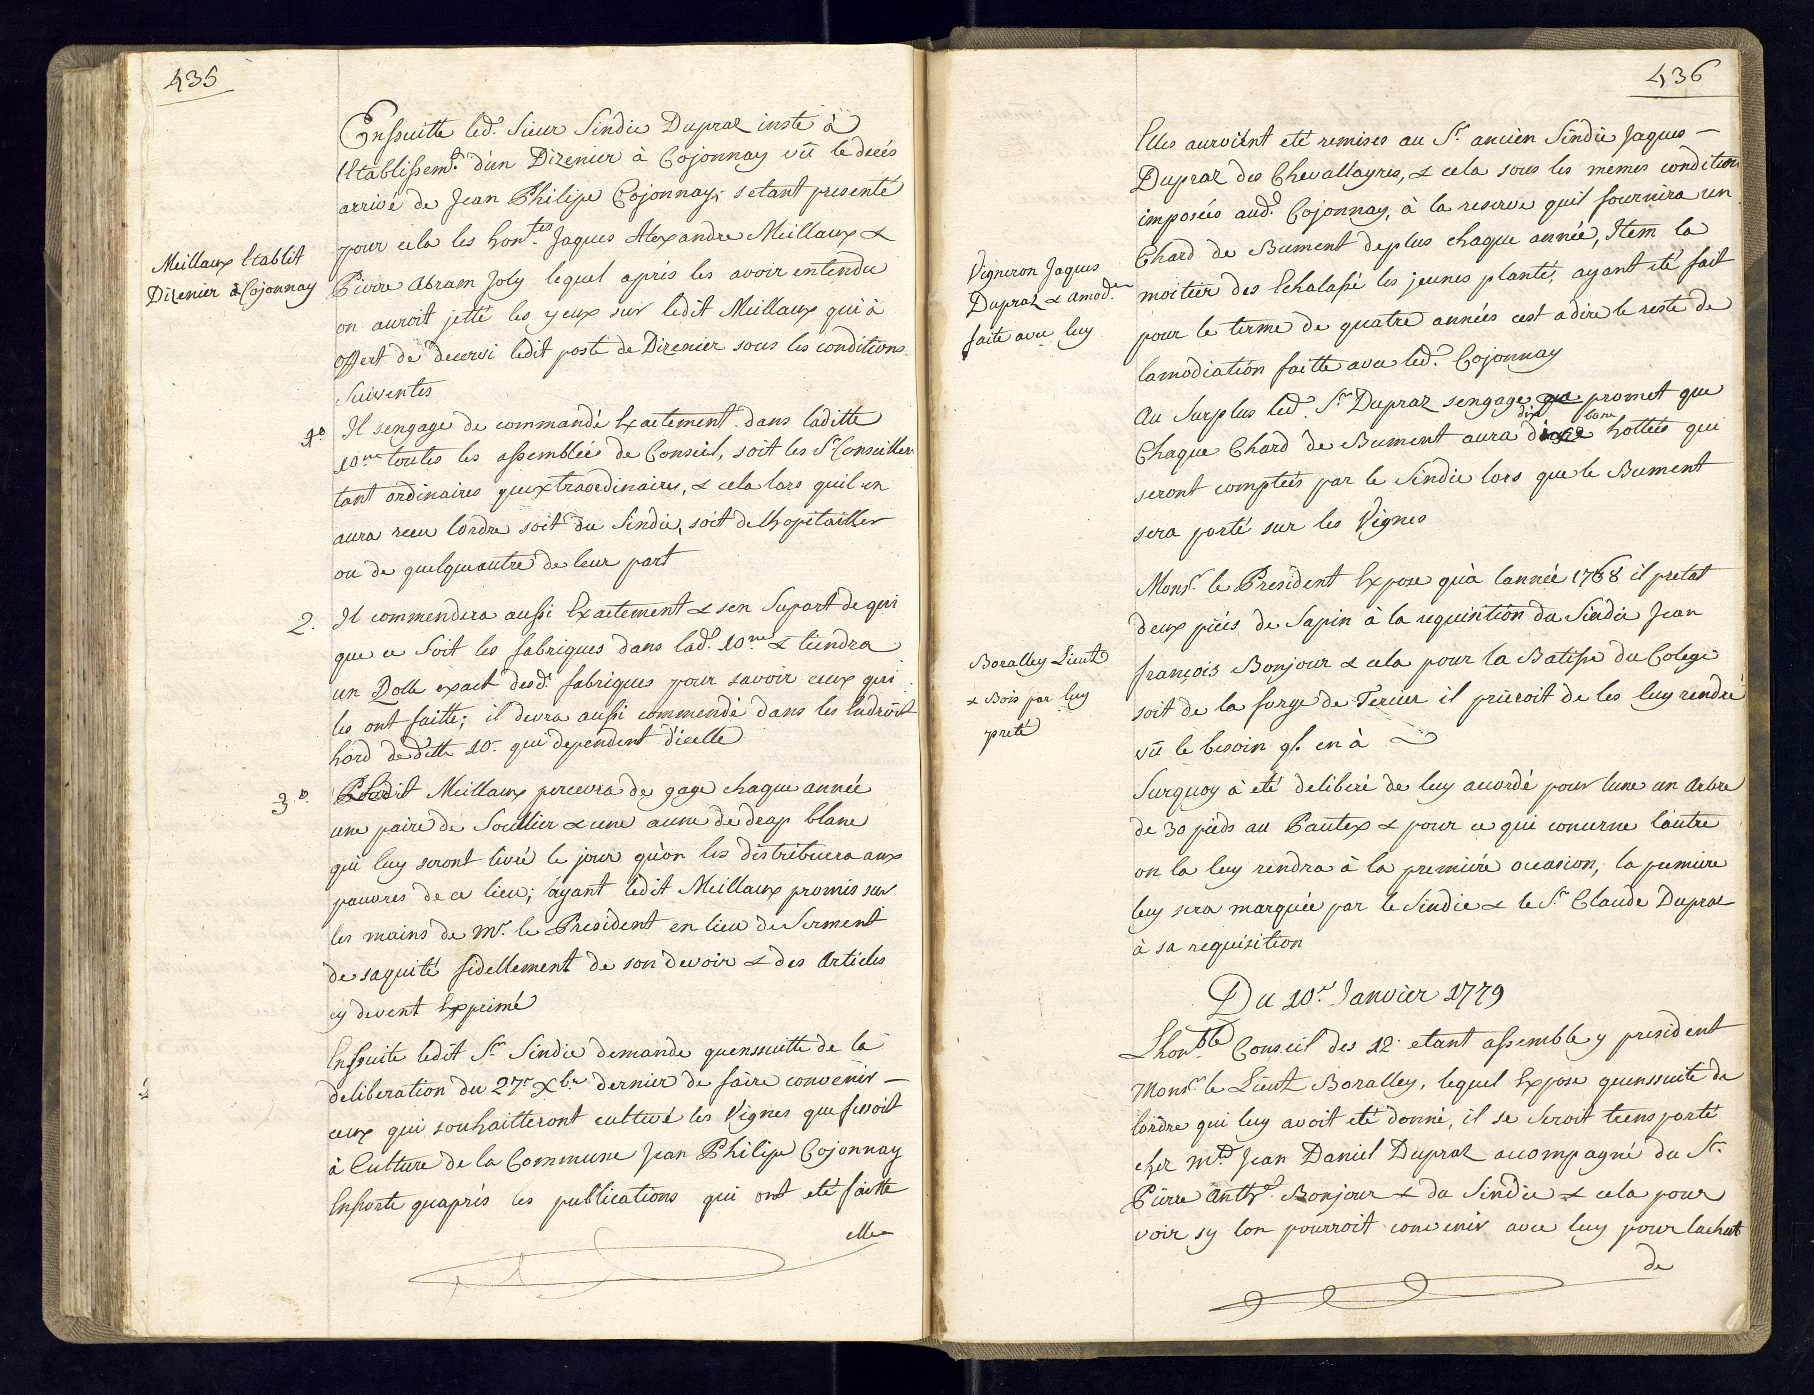 435
Ensuitte led. Sieur Sindic Dupraz insté à
l'Etablissemt. d'un Dizenier à Cojonnay vû le decés
arrivé de Jean Philipe Cojonnay, setant presenté
pour cela les hontes. Jaques Alexandre Meillaux &
Meillaux Etablit
Dizenier à Cojonnay
Pierre Abram Joly lequel aprés les avoir entendu
on auroit jetté les yeux sur ledit Meillaux qui à
offert de decervi ledit poste de Dizenier sous les conditions
Suiventes
1o Il sengage de commandé Exactement dans laditte
10.ne toutes les assemblées de Conseil, soit les Srs Conseiller
tant ordinaires quextraordinaires, & cela lors quil en
aura receu lordre soit du Sindic, soit de lhopitailler
ou de quelquautre de leur part
2. Il commendera aussi Exactement & sen Suport de qui
que ce Soit les fabriques dans lad. 10.ne & tiendra
un Rolle exact desd. fabriques pour savoir ceux qui
les ont faitte; il devra aussi commendé dans les Endroit
hord de ditte 10e. qui dependent dicelle
3o. Ledit Meillaux percevra de gage chaque année
une paire de Soullier & une aune de drap blanc
qui luy seront livré le jour qu'on les distribuera aux
pauvres de ce lieu; ayant ledit Meillaux promis sur
les mains de Mr. le President en lieu de Serment
de saquité fidellement de son devoir & des Articles
cy devent Exprimé
Ensuite ledit Sr. Sindic demande quenssuitte de la
deliberation du 27e Xbre dernier de faire convenir
ceux qui souhaitteront cultivé les Vignes que fesoit
à Culture de la Commune Jean Philipe Cojonnay
Ensorte quaprés les publications qui ont eté faitte
elles
436
Elles auroient eté remises au Sr. ancien Sindic Jaques
Dupraz des Chevallayres, & cela sous les mêmes condition
imposées aud. Cojonnay, à la reserve quil fournira un
Chard de Bument de plus chaque année, Item la
Vigneron Jaques
Dupraz & amod.on
faite avec luy
moitier des Echalassé les jeunes planté, ayant eté fait
pour le terme de quatre années cest adire le reste de
lamodiation faitte avec led. Cojonnay
Au Surplus led. Sr Dupraz sengage promet que
Chaque Chard de Bument aura dixe bone hottées qui
seront comptées par le Sindic lors que le Bument
sera porté sur les Vignes
Monsr. le President Expose quà lannée 1768 il pretat
deux piéés de Sapin à la requisition du Sindic Jean
Boralley Lieut
& Bois par luy
preté
françois Bonjour & cela pour la Batisse du Colege
soit de la forge de Tercier il prieroit de les luy rendre
vû le besoin ql. en à
Surquoy à été deliberé de luy accordé pour lune un Arbre
de 30 pieds au Pautex & pour ce qui concerne lautre
on la luy rendra à la premiére occasion, la premiere
luy sera marquée par le Sindic & le Sr Claude Dupraz
à sa requisition
Du 10e. Janvier 1779
Lhon.ble Conseil des 12. etant assemble y president
Monsr. le Lieut Boralley, lequel Expose quenssuite de
lordre qui luy avoit eté donné, il se seroit trensporté
chez Mtre Jean Daniel Dupraz accompagné du Sr.
Pierre Anth.e Bonjour & du Sindic & cela pour
voir sy lon pourroit convenir avec luy pour lachat
de